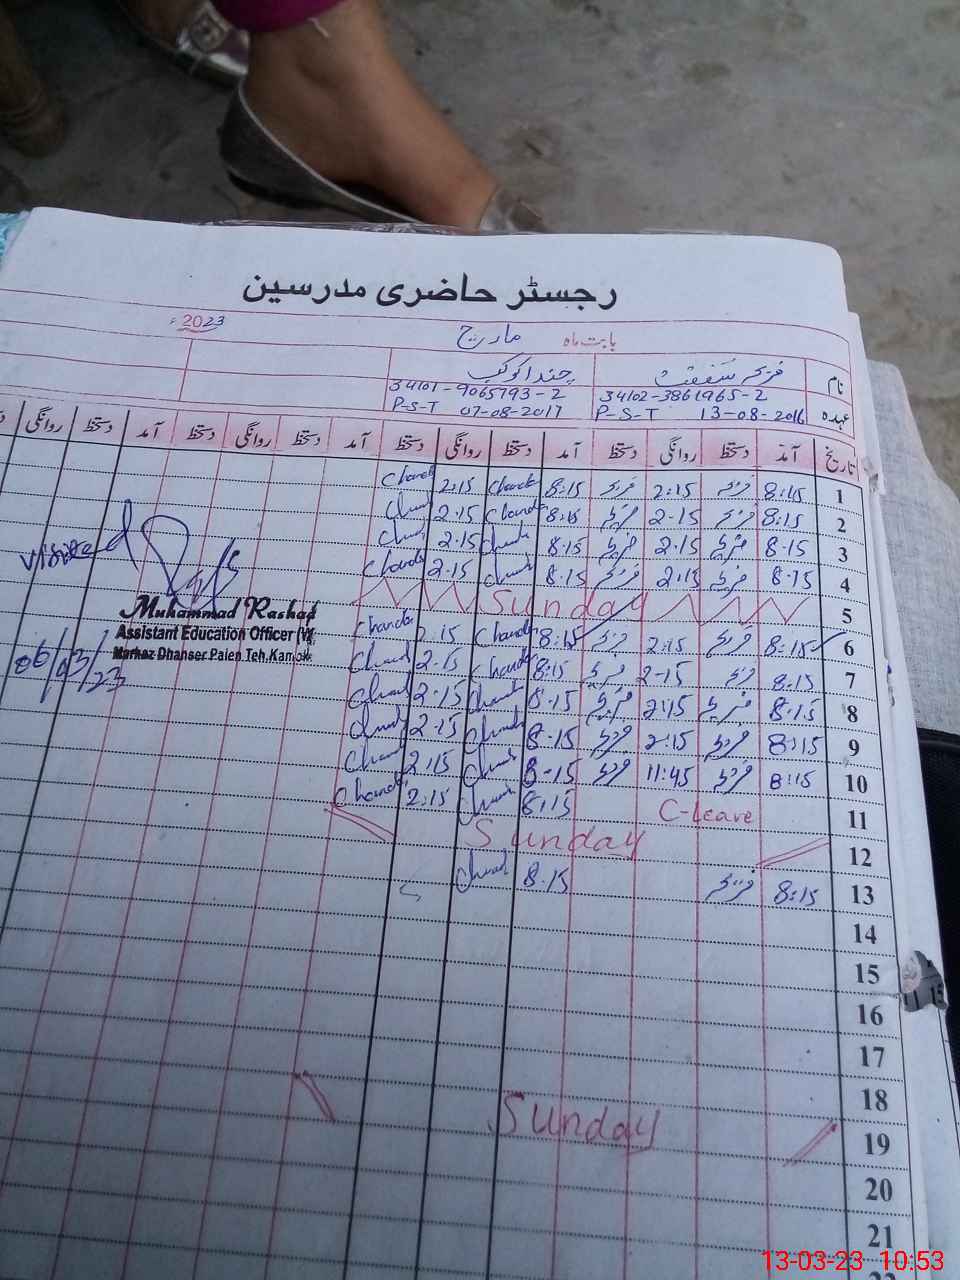 رجسٹر حاضری مدرسین
بابت ماہ مارچ 2023ء
نام فرح شفقت چندا کوکب
34102-3861965-2 34101-9065793-2
عہدہ P-S-T 13-08-2016 P-S-T 07-08-2017
تاریخ آمد دستخط روانگی دستخط آمد دستخط روانگی دستخط آمد دستخط روانگی دستخط آمد دستخط روانگی
1 8:15 فرح 2:15 فرح 8:15 Chanda 2:15 Chanda
2 8:15 فرح 2-15 فرح 8:15 Chanda 2-15
3 8-15 فرح 2-15 فرح 8-15 2-15
4 8-15 فرح 2:15 فرح 8:15 2-15 Chanda
5 Sunday
6 8:15 فرح 2:15 فرح 8:15 Chanda 2:15 Chanda
7 8:15 فرح 2-15 فرح 8:15 Chanda 2-15
8 8-15 فرح 2:15 فرح 8-15 Chanda 2-15
9 8:15 فرح 2:15 فرح 8-15 2-15
10 8:15 فرح 11:45 فرح 8-15 2:15
11 C-Leave 8:15 2:15 Chanda
12 Sunday
13 8:15 فرح 8-15
14
15
16
17
18
19 Sunday
20
21
Visited
Muhammad Rashad
Assistant Education Officer
Markaz Dhanser Paien Teh. Kamoke
06/03/23
13-03-23 10:53